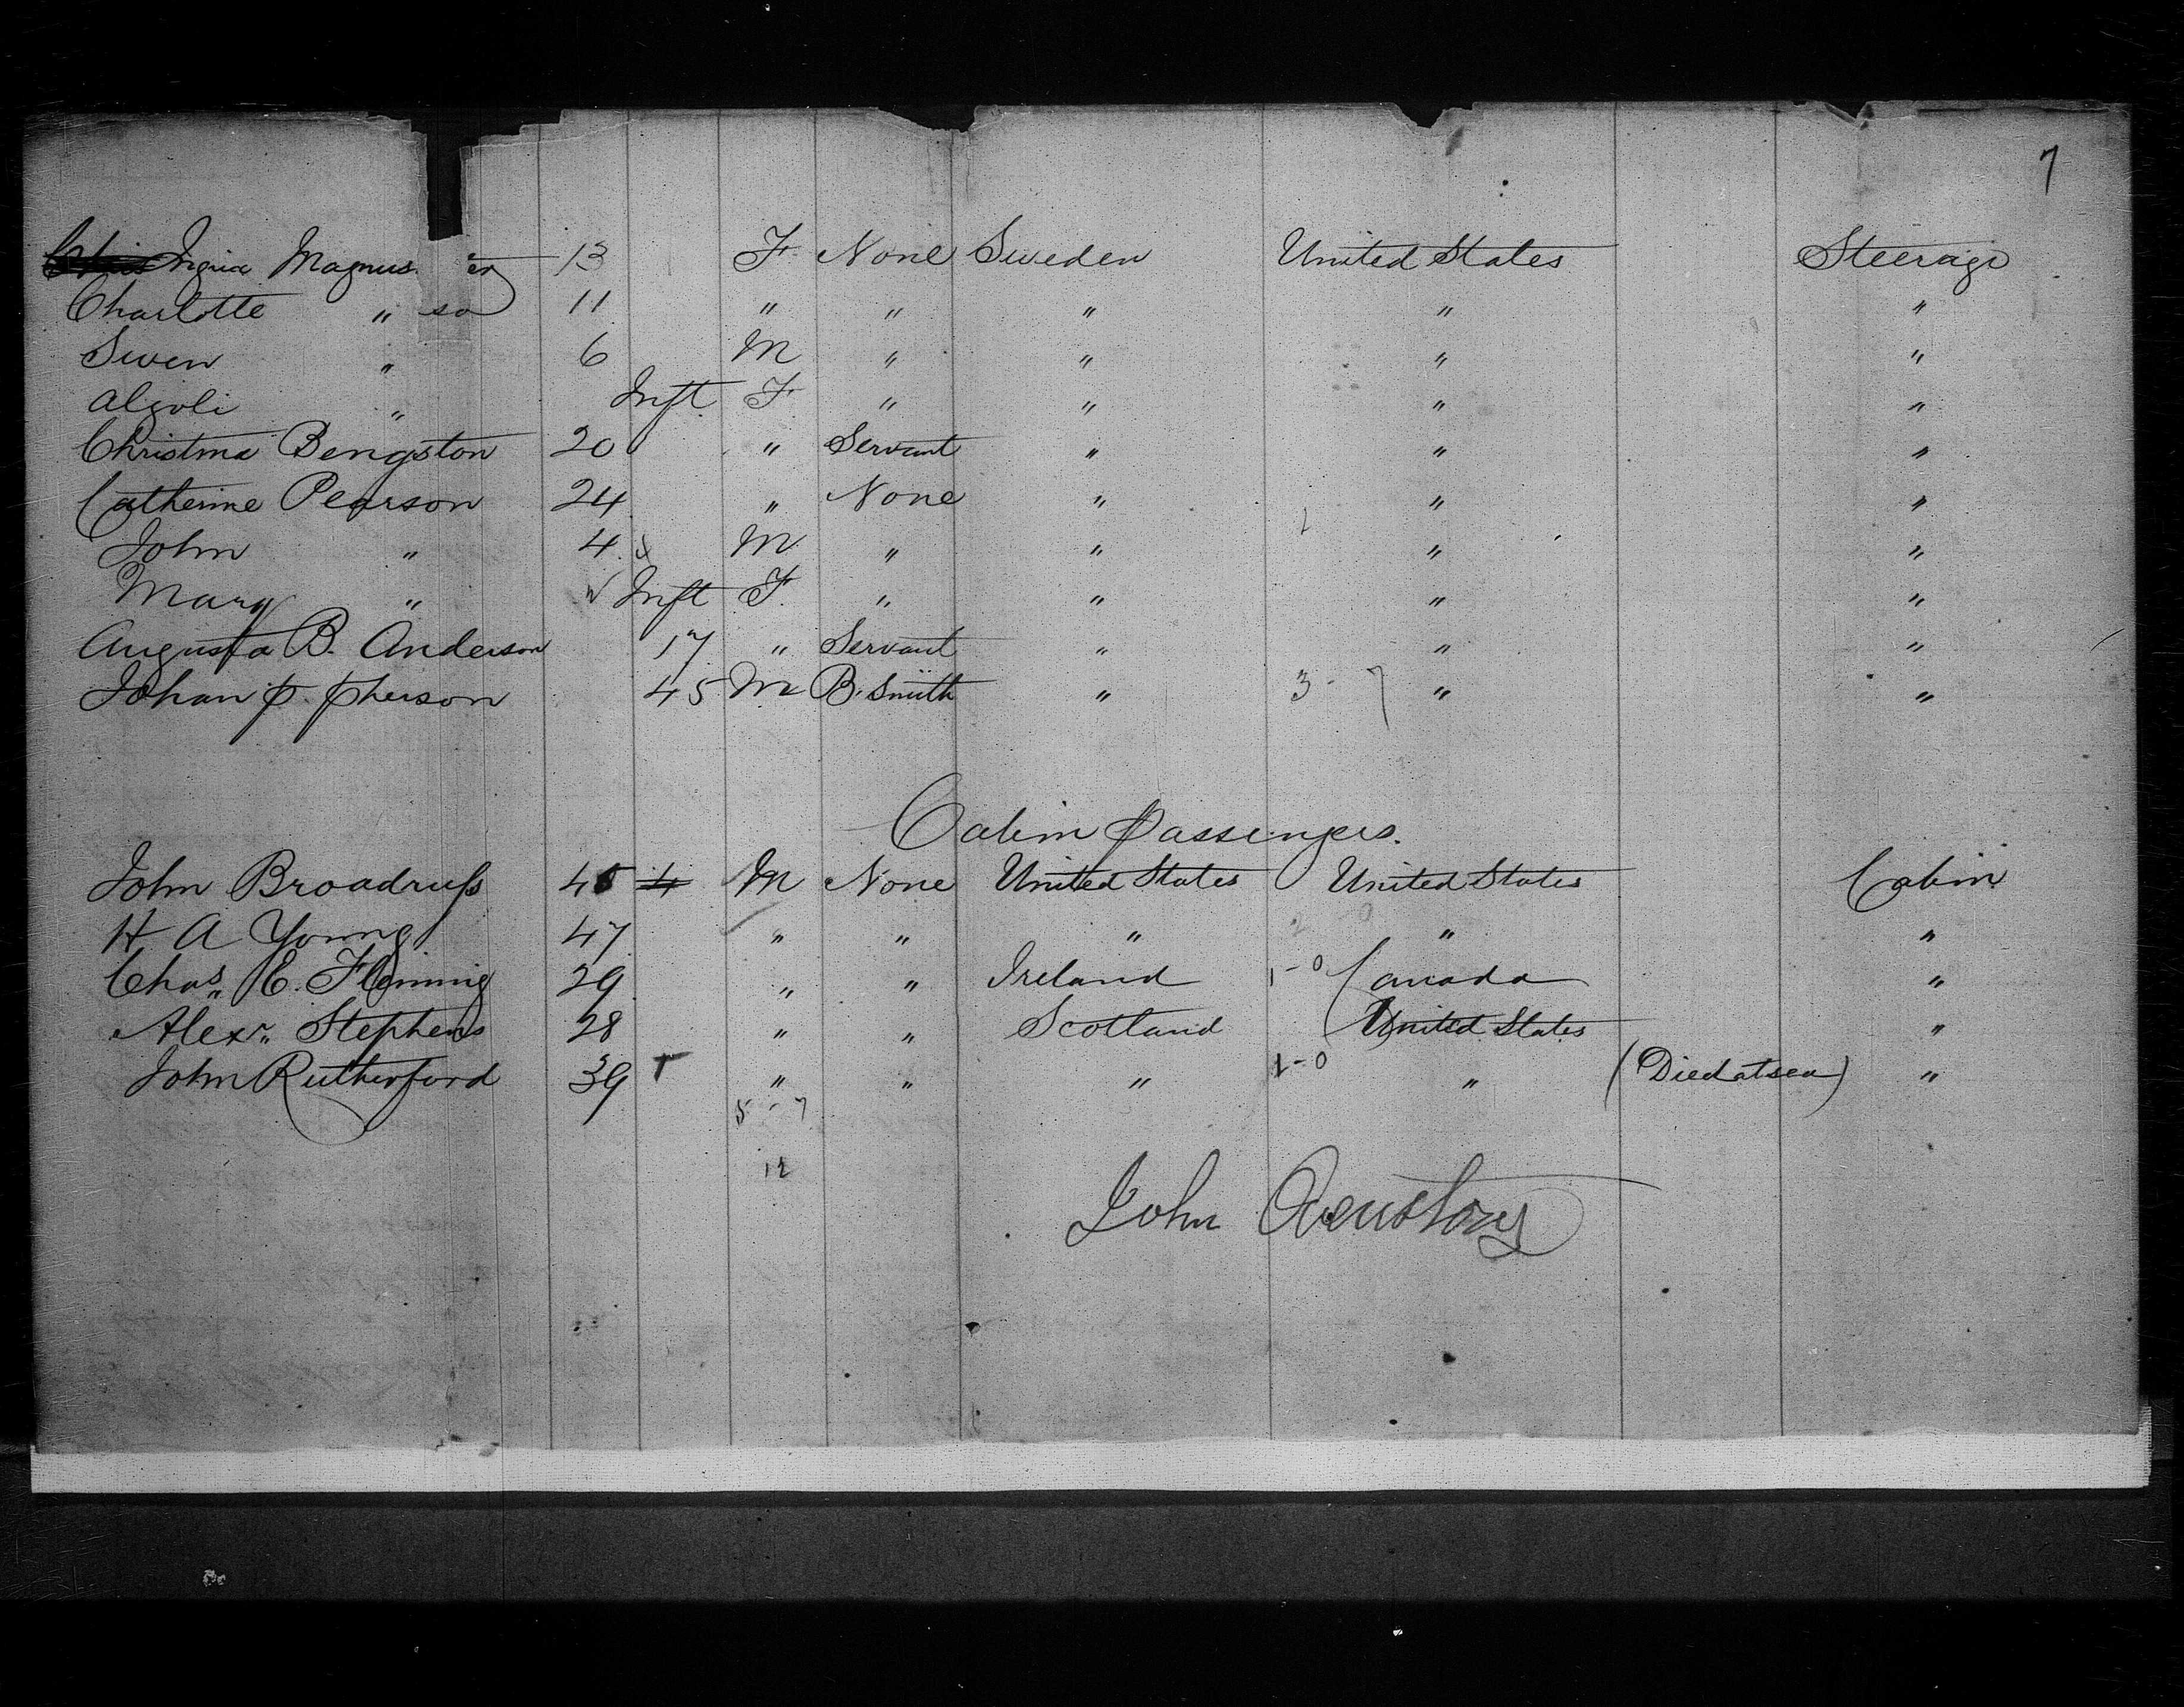 7
Ingria Magnus 13 F None Sweden United States Steerage
Charlotte " 11 " " " " "
Swen " 6 M " " " "
Algoli " Inft F " " " "
Christina Bengston 20 " Servant " " "
Catherine Pearson 24 " None " " "
John " 4 M " " " "
Mary " Inft F " " " "
Augusta B. Anderson 17 " Servant " " "
Johan P. Pherson 45 M B. Smith " 3 - 7 " "
Cabin Passengers.
John Broadruss 45 4 M None United States United States Cabin
H A Young 47 " " " " "
Chas. E. Fleming 29 " " Ireland 1-0 Canada "
Alexr. Stephens 28 " " Scotland United States "
John Rutherford 39 " " " 1-0 " (Died at sea) "
5 - 7
12
John